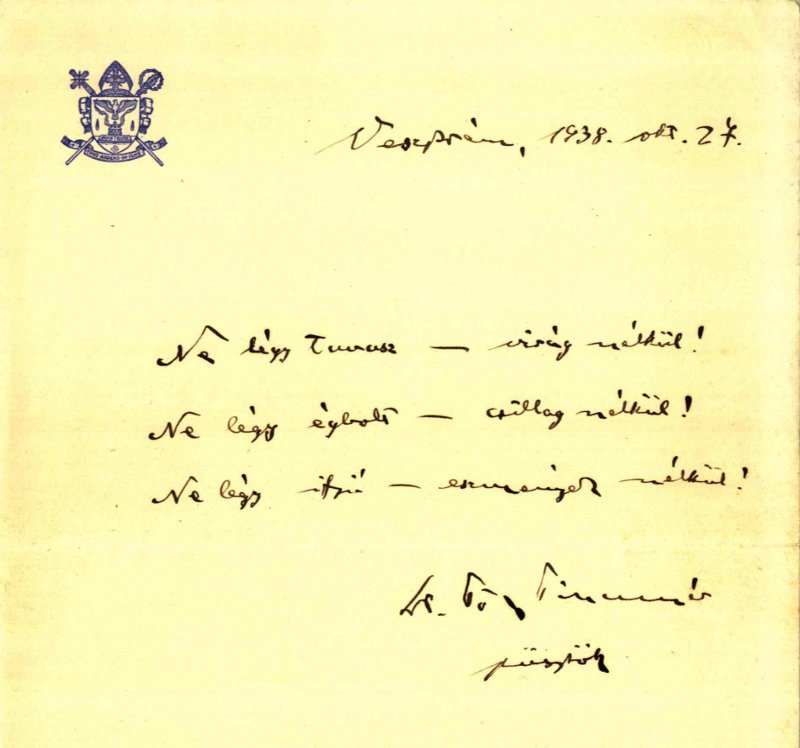 Veszprém, 1938. okt. 27.
Ne légy tavasz — virág nélkül!
Ne légy égbolt — csillag nélkül!
Ne légy ifjú — eszmények nélkül!
Dr. Tóth Tihamér
püspök